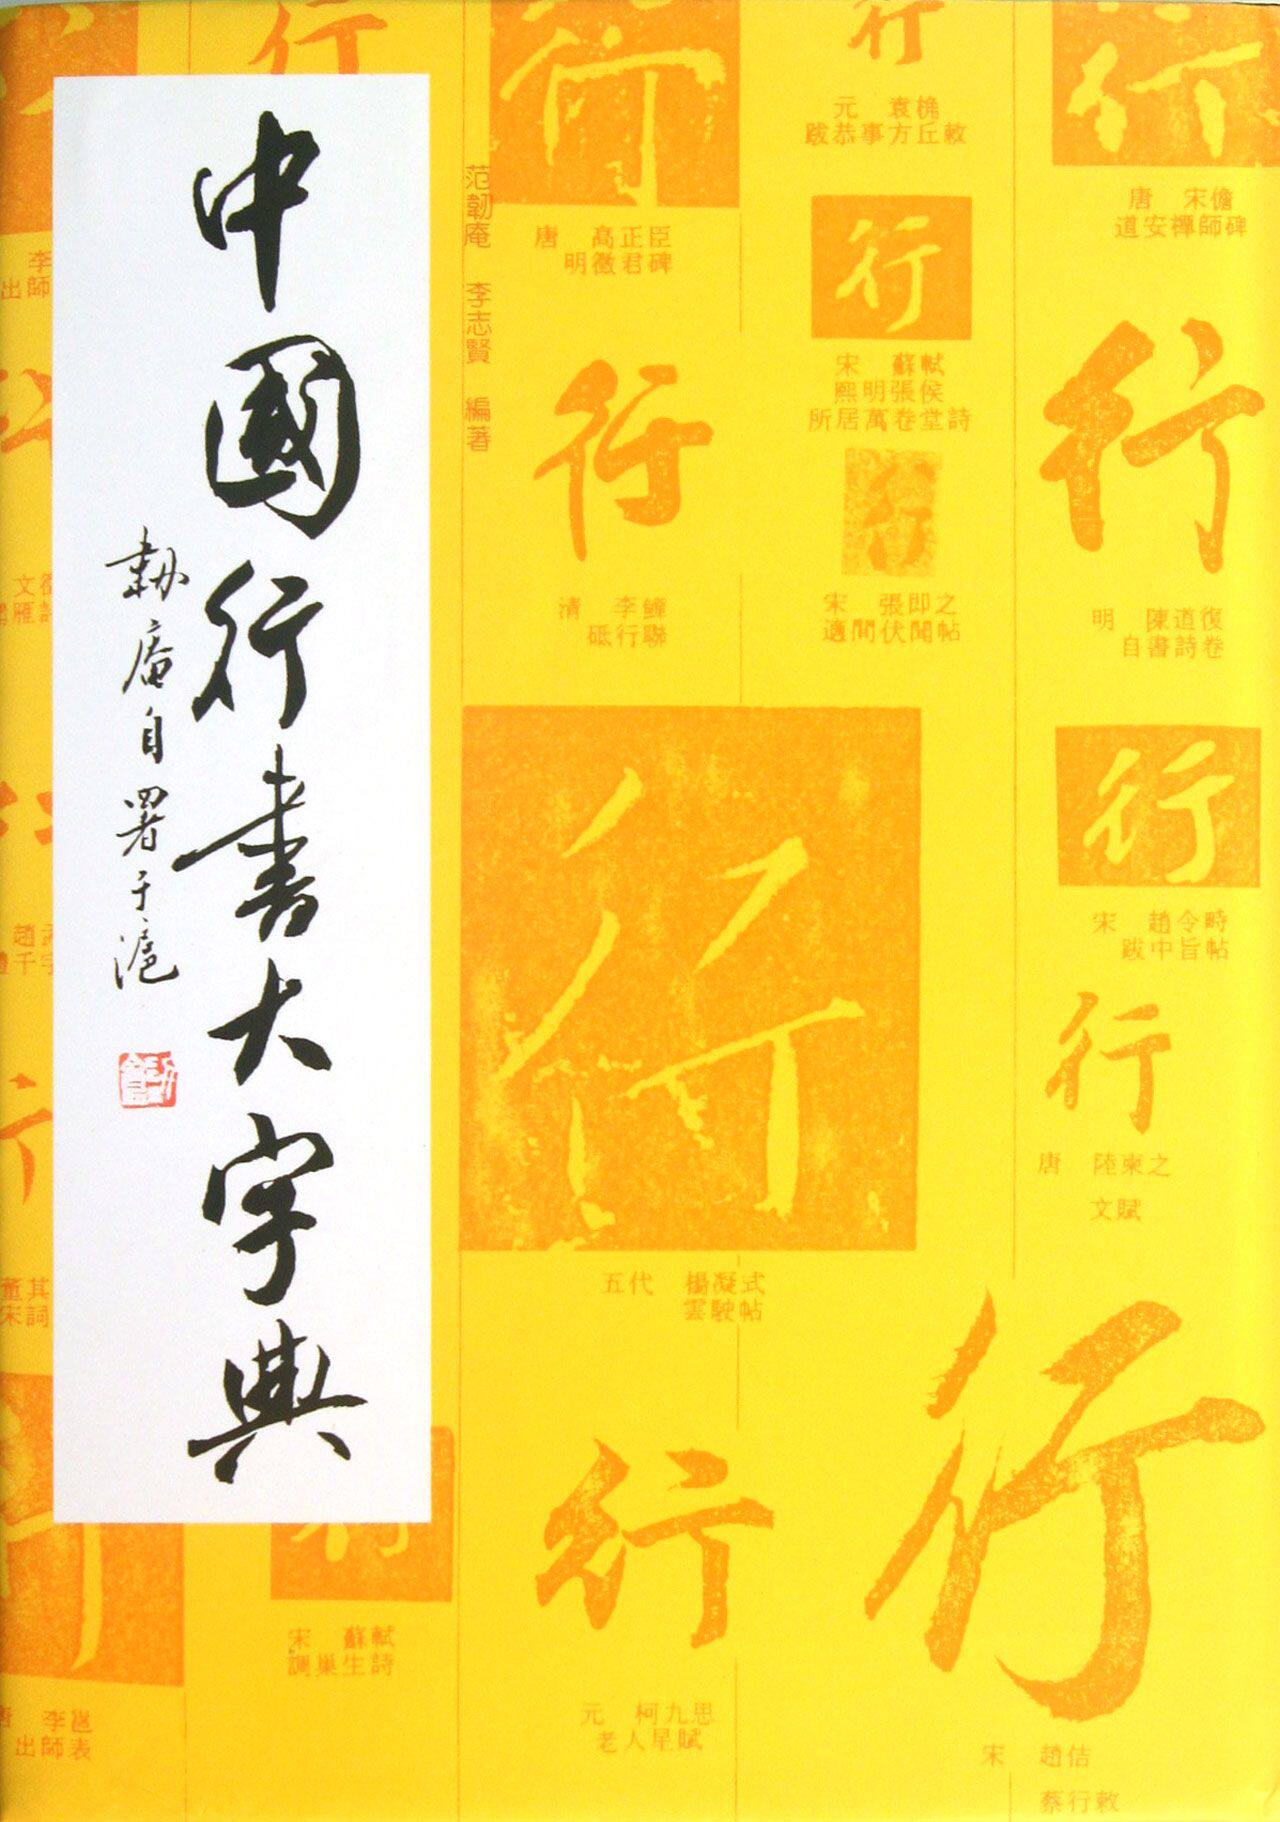 中國行書大字典
韌庵自署于滬
范韌庵 李志賢 編著
行
行
唐 高正臣
明徵君碑
行
元 袁桷
跋恭事方丘敕
行
唐 宋儋
道安禪師碑
行
宋 蘇軾
熙明張侯
所居萬卷堂詩
行
清 李鱓
砥行聯
行
宋 張即之
適間伏聞帖
行
明 陳道復
自書詩卷
行
五代 楊凝式
雲駛帖
行
宋 趙令畤
跋中旨帖
行
唐 陸柬之
文賦
行
宋 蘇軾
調巢生詩
行
元 柯九思
老人星賦
行
宋 趙佶
蔡行敕
李
出師
文
雁
趙孟
千字
行
董其
宋詞
唐 李邕
出師表